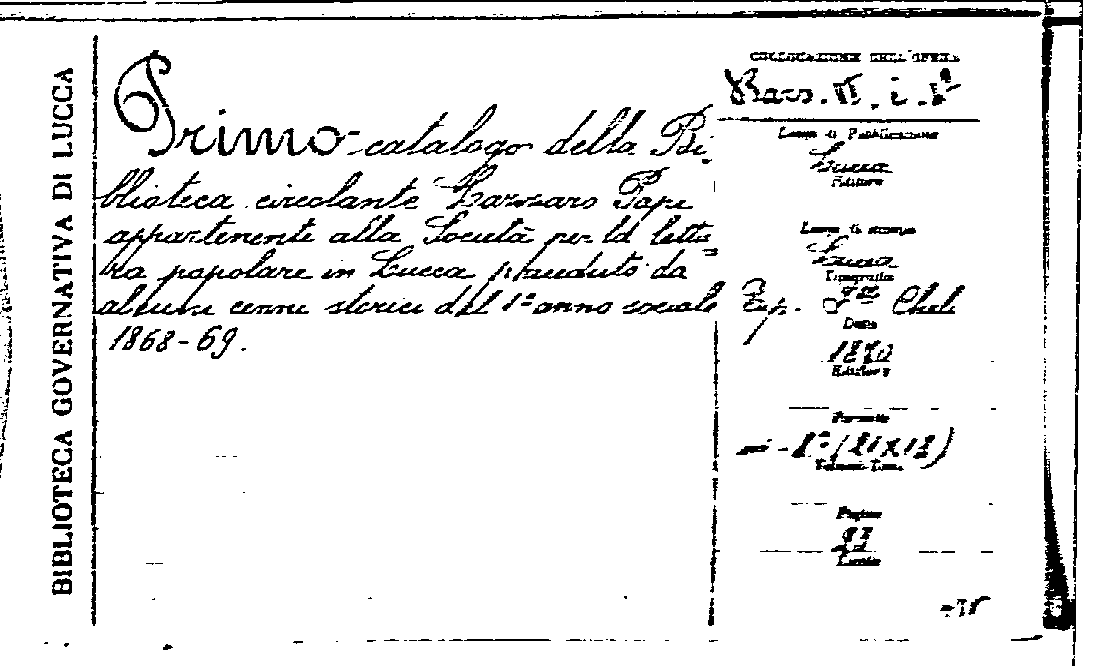 BIBLIOTECA GOVERNATIVA DI LUCCA
Primo catalogo della Bi-
blioteca circolante Lazzaro Papi
appartenente alla Società per la lettu-
ra popolare in Lucca preceduto da
alcuni cenni storici del 1º anno sociale
1868-69.
COLLOCAZIONE DELL'OPERA
Luogo di Pubblicazione
Lucca
Editore
Luogo di stampa
Lucca
Tipografia
Tip.
Data
1870
Edizione
Formato
Pagine